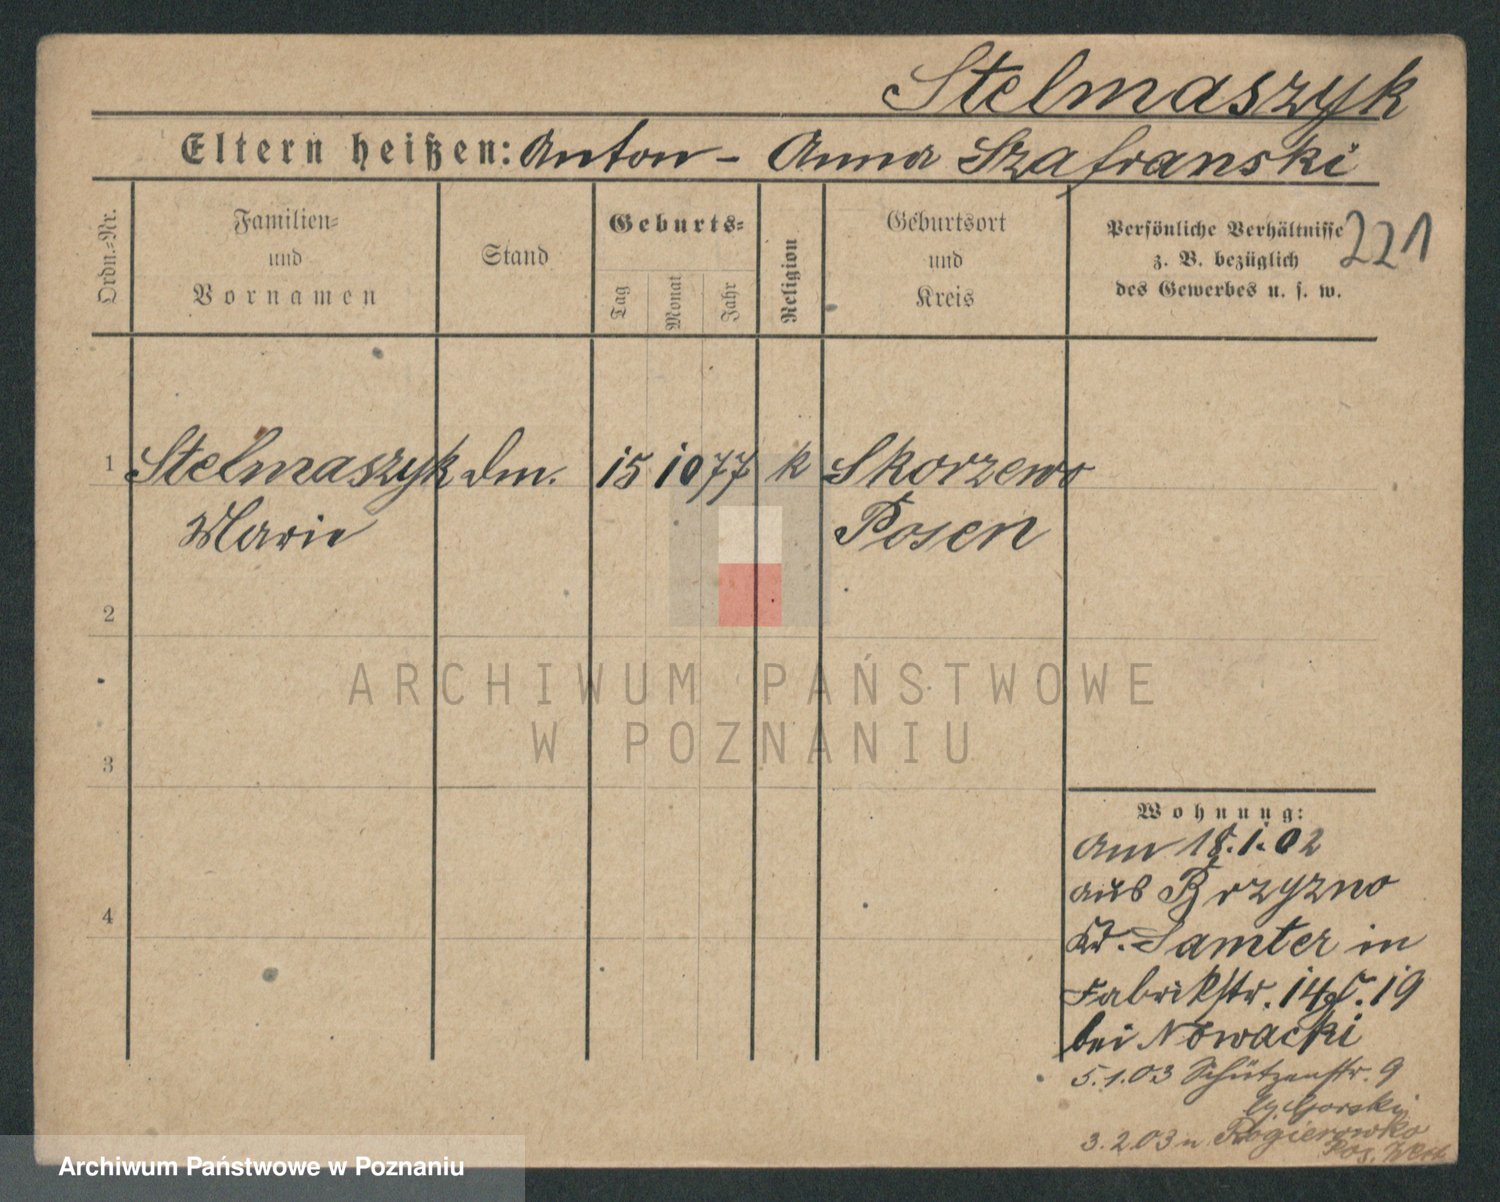 Stelmaszyk
Eltern heißen: Anton - Anna Szafranski
Ordn.=Nr.
Familien=
und
Vornamen
Stand
Geburts=
Tag
Monat
Jahr
Religion
Geburtsort
und
Kreis
Persönliche Verhältnisse
z. B. bezüglich
des Gewerbes u. s. w.
221
1 Stelmaszyk dm. 15 10 77 k Skorzewo
Marie Posen
2
3
4
Wohnung:
am 18.1.02
aus Brzyzno
Kr. Samter in
Fabrikstr. 14 19
bei Nowacki
5.1.03 Schützenstr. 9
Gorski
3.2.03 n Rogierowko
Pos. West
ARCHIWUM PAŃSTWOWE
W POZNANIU
Archiwum Państwowe w Poznaniu